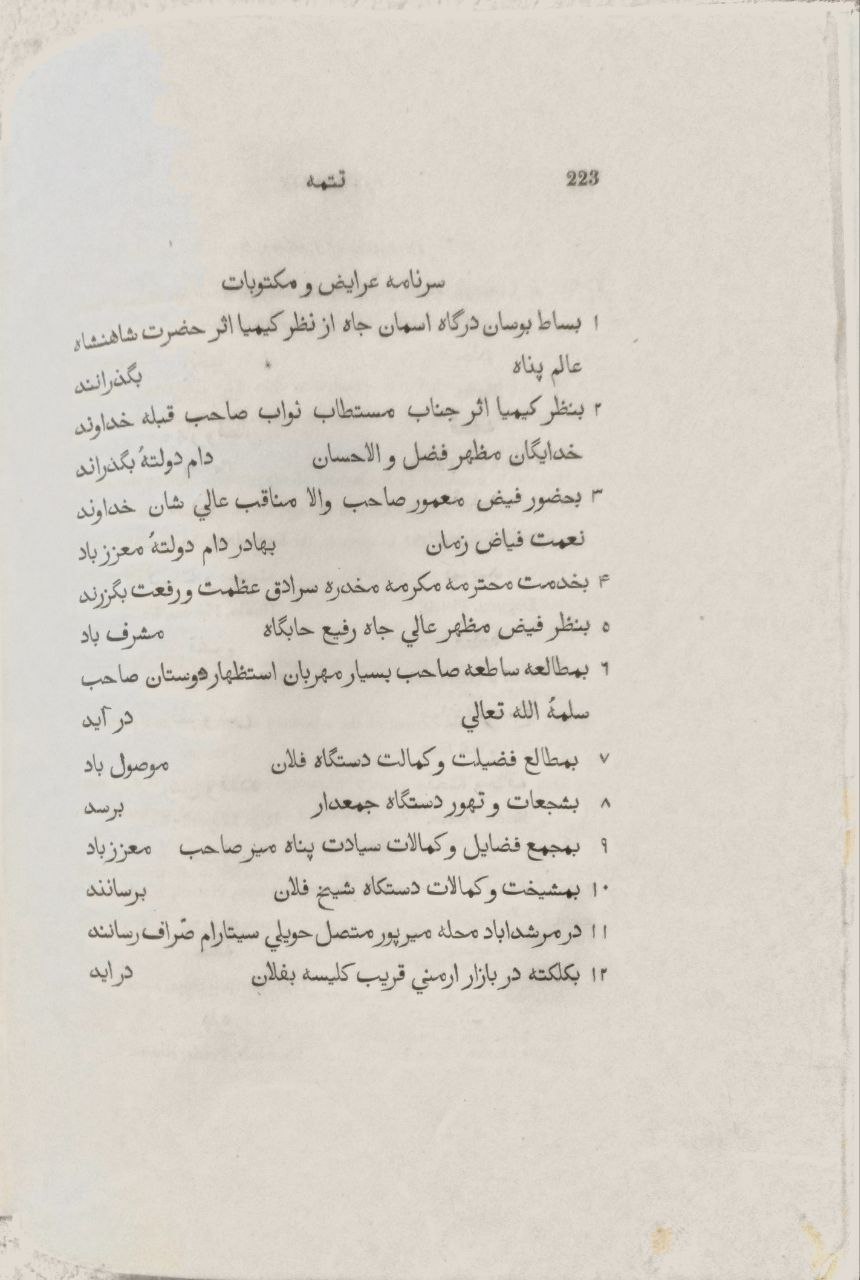 223 تتمه
سرنامه عرایض و مکتوبات
۱ بساط بوسان درگاه اسمان جاه از نظر کیمیا اثر حضرت شاهنشاه
عالم پناه بگذرانند
۲ بنظر کیمیا اثر جناب مستطاب نواب صاحب قبله خداوند
خدایگان مظهر فضل و الاحسان دام دولتهُ بگذراند
۳ بحضور فیض معمور صاحب والا مناقب عالي شان خداوند
نعمت فیاض زمان بهادر دام دولتهُ معزز باد
۴ بخدمت محترمه مکرمه مخدره سرادق عظمت و رفعت بگزرند
۵ بنظر فیض مظهر عالي جاه رفیع جایگاه مشرف باد
۶ بمطالعه ساطعه صاحب بسیار مهربان استظهار دوستان صاحب
سلمهُ الله تعالي در آید
۷ بمطالع فضیلت و کمالت دستگاه فلان موصول باد
۸ بشجعات و تهور دستگاه جمعدار برسد
۹ بمجمع فضایل و کمالات سیادت پناه میر صاحب معزز باد
۱۰ بمشیخت و کمالات دستکاه شیخ فلان برسانند
۱۱ در مرشداباد محله میرپور متصل حویلي سیتارام صّراف رسانند
۱۲ بکلکته در بازار ارمني قریب کلیسه بفلان در اید